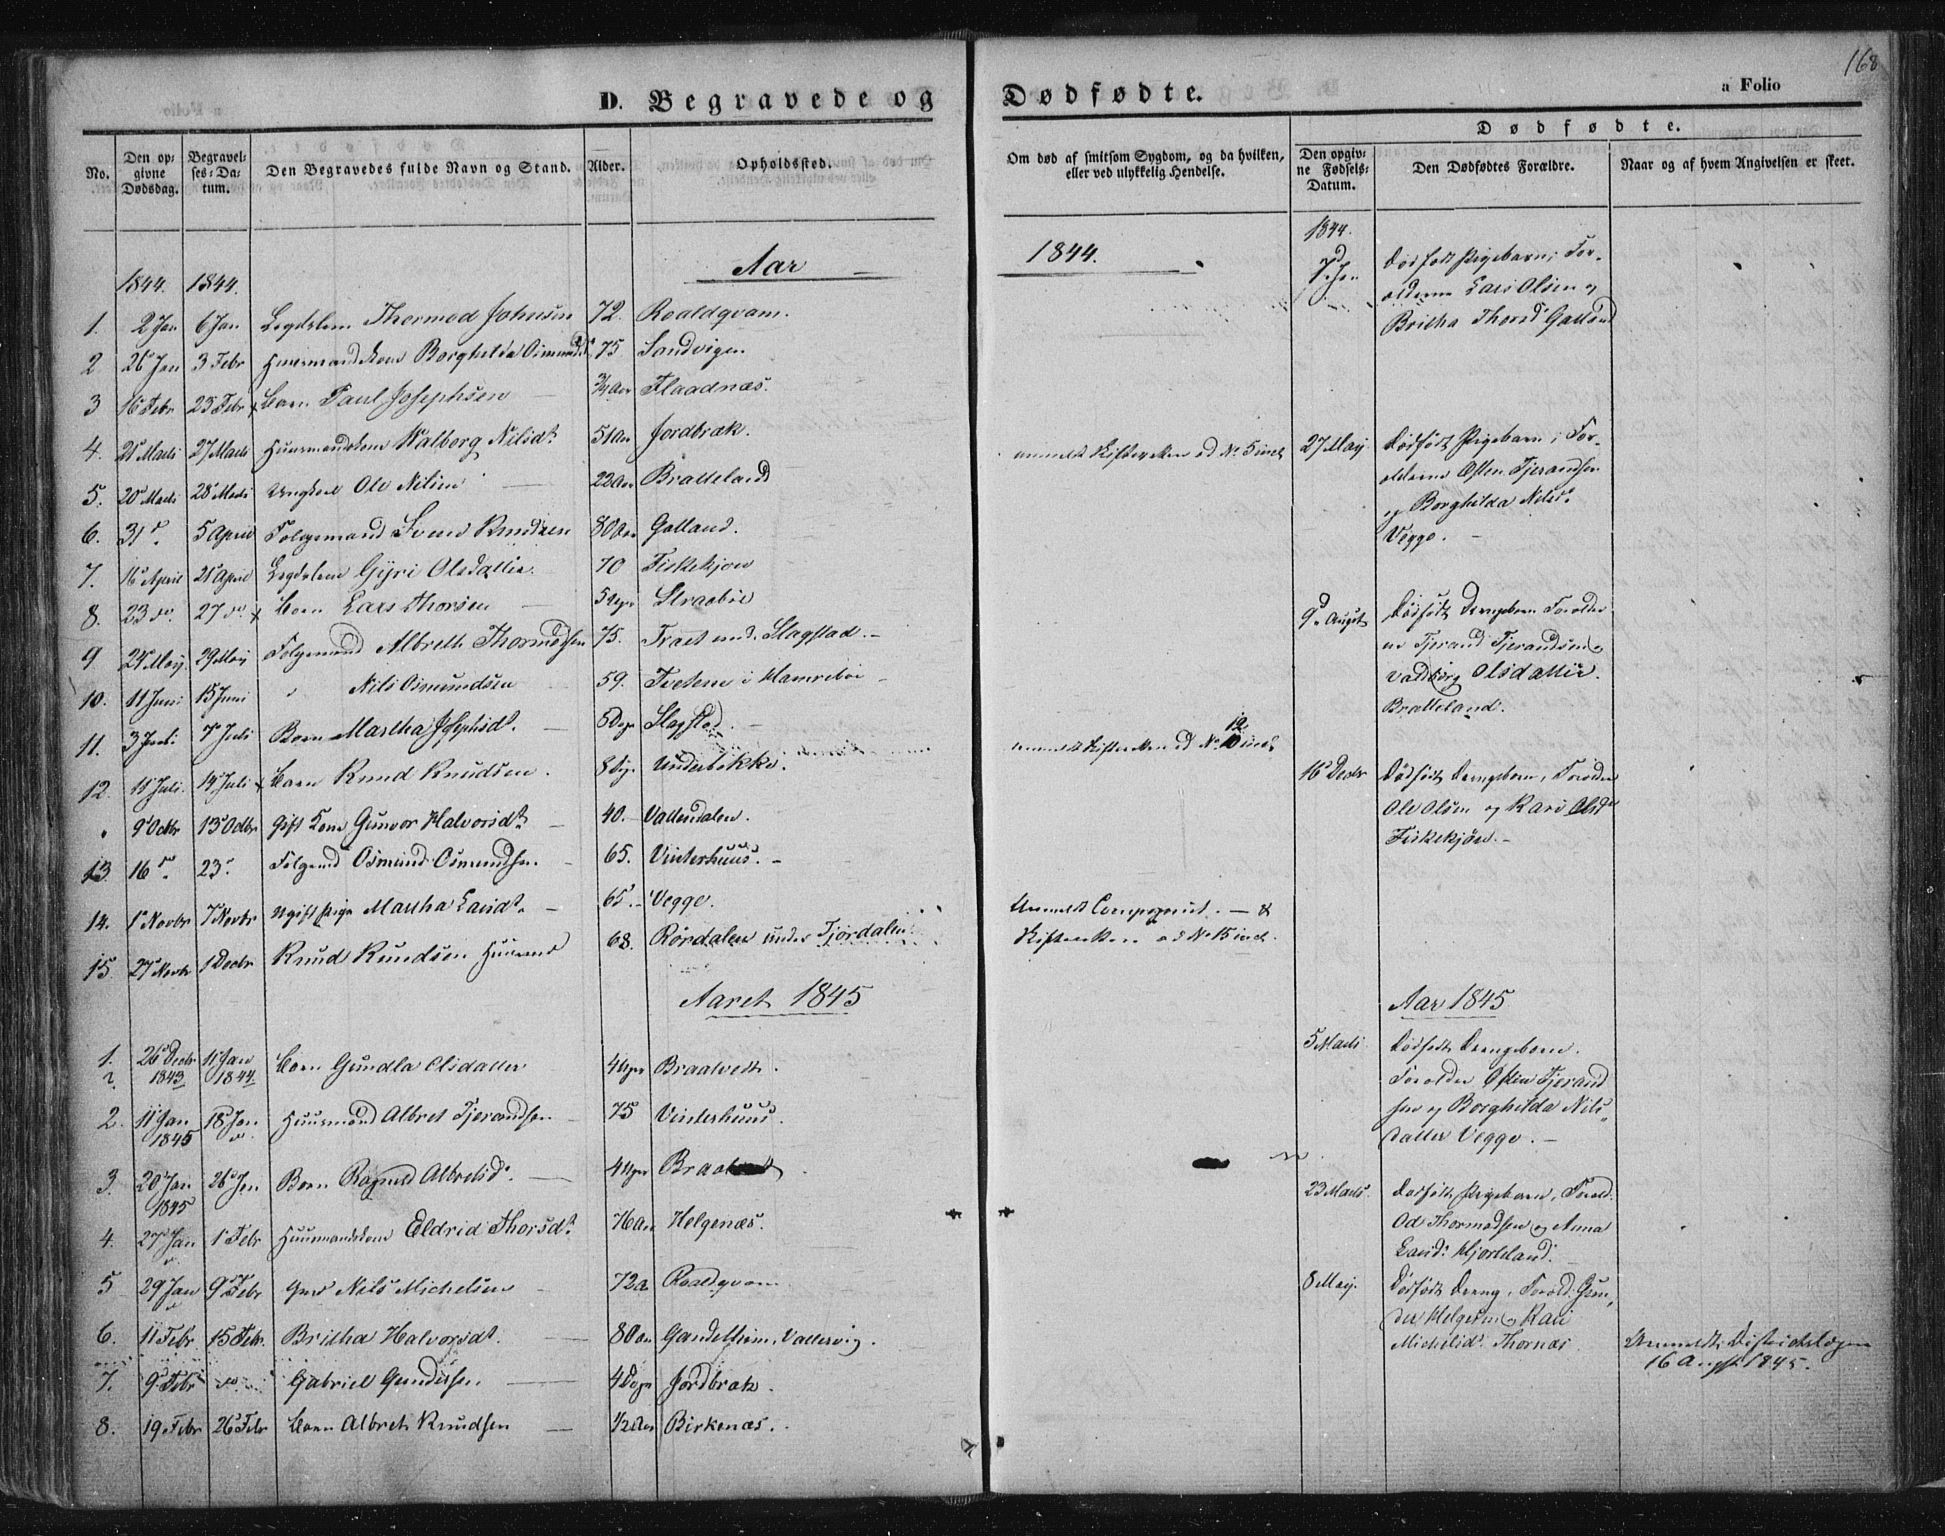 168
D. Begravede og Dødfødte.
a Folio
No.
Den opgivne Dødsdag.
Begravelses-Datum.
Den Begravedes fulde Navn og Stand.
Alder.
Opholdssted.
Om død af smitsom Sygdom, og da hvilken, eller ved ulykkelig Hendelse.
Dødfødte.
Den opgivne Fødsels-Datum.
Den Dødfødtes Forældre.
Naar og af hvem Angivelsen er skeet.
Aar 1844.
1844. 1844.
1. 2 Jan 6 Jan Legdslem Thormod Johnsen 72. Roaldqvam.
2 26 Jan 3 Febr Huusmandskone Borghilda Osmundsdt 75 Sandvigen
3 16 Febr 25 Febr Barn Paul Josephsen 3/4 Aar Flaadnæs.
4. 21 Marts 27 Marts Huusmandskone Walborg Nilsdt 51 Aar Jordbræk.
5. 20 Marts 28 Marts Ungkarl Ole Nilsen 22 Aar Bratteland
6. 31 d. 5 April Folgemand Svend Knudsen 80 Aar Galland.
7. 16 April 21 April Legdslem Gyri Olsdatter 70 Fiskekjøn
8. 23 do 27 do Barn Lars Thorsen 5 Uger Straabøe
9 24 May 29 May Folgemand Albreth Thormodsen 75. Træet und. Slagstad.
10. 11 Juni 15 Juni " Nils Osmundsen 59. Tveten i Hamrebøe
11. 3 Juli 7 Juli Barn Martha Josephsdt. 5 Dage Slagstad
12. 11 Juli 14 Juli Barn Knud Knudsen. 8 Dge Underbakke.
" 9 Octbr 13 Octbr Gift Kone Gunvor Halvorsdt. 40. Vallendalen.
13. 16 d. 23. Folgemd Osmund Osmundsen. 65. Vinterhuus.
14. 1 Novbr 7 Novbr Ugift Pige Martha Larsdt. 65. Vegge.
15. 27 Novbr 1 Decbr Knud Knudsen Huusmand 68. Rørdalen under Fjordalen
Aaret 1845
1. 26 Decbr 1843 11 Jan 1844 Barn Gundla Olsdatter 4 Uger Braatvedt.
2. 11 Jan 1845 18 Jan Huusmand Albret Tjerandsen 75 Vinterhuus.
3. 20 Jan 1845 26 Jan Barn Ragnild Albretsd. 4 Uger
4. 27 Jan 1 Febr Huusmandskone Eldrid Thorsdt 76 Aar Helgenæs.
5 29 Jan 9 Febr Nils Michelsen 72 a Roaldqvam
6. 11 Febr 15 Febr. Britha Halvorsdt. 80 Aar Gandelheim, Vallervig.
7. 9 Febr do Gabriel Gundersen 4 Dage Jordbræk.
8. 19 Febr 26 Febr Barn Albret Knudsen 1/2 Aar Birkenæs.
1844.
7 Jan
Dødfødt Pigebarn; For-
ældrene Lars Olsen og
Britha Thorsd Galland
27 May
Dødfødt Pigebarn; For-
ældrene Østen Tjerandsen
og Borghilda Nilsd.
Vegge.
9 August
Dødfødt Drengebarn Forældre
ne Tjerand Tjerandsen og
Valborg Olsdatter.
Bratteland.
16 Decbr
Dødfødt Drengebarn, Forældre
Ole Olsen og Kari Olsdt
Fiskekjøn.
Aar 1845
5 Marts
Dødfødt Drengebarn.
Forældre Østen Tjerand
sen og Borghilda Nils-
datter Vegge.
23 Marts.
Dødfødt Pigebarn, Foræld.
Od Thormodsen og Anna
Larsd. Hjorteland.
8 May.
Dødfødt Dreng, Foræld. Gun-
der Helgesen og Kari
Michelsd. Thornæs
anmeldt Skifteretten ad No 5
anmeldt Skifteretten ad No 12
Anmeldt Skifteretten ad No
Anmeldt Districtslægen
16 August 1845.